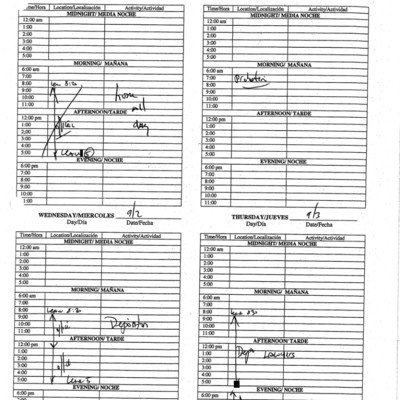 Time/Hora Location/Localización Activity/Actividad
MIDNIGHT/ MEDIA NOCHE
12:00 am
1:00
2:00
3:00
4:00
5:00
MORNING/ MAÑANA
6:00 am
7:00
8:00 8:30
9:00
10:00 home
11:00 all
AFTERNOON/TARDE
12:00 pm
1:00 day
2:00
3:00
4:00
5:00
EVENING/ NOCHE
6:00 pm
7:00
8:00
9:00
10:00
11:00
1:00
Time/Hora Location/Localización Activity/Actividad
MIDNIGHT/ MEDIA NOCHE
12:00 am
1:00
2:00
3:00
4:00
5:00
MORNING/ MAÑANA
6:00 am
7:00
8:00 Probation
9:00
10:00
11:00
AFTERNOON/TARDE
12:00 pm
1:00
2:00
3:00
4:00
5:00
EVENING/ NOCHE
6:00 pm
7:00
8:00
9:00
10:00
11:00
WEDNESDAY/MIERCOLES 9/2
Day/Día Date/Fecha
Time/Hora Location/Localización Activity/Actividad
MIDNIGHT/ MEDIA NOCHE
12:00 am
1:00
2:00
3:00
4:00
5:00
MORNING/ MAÑANA
6:00 am
7:00
8:00 8:30
9:00
10:00
11:00
AFTERNOON/ TARDE
12:00 pm
1:00
2:00
3:00
4:00
5:00
EVENING/ NOCHE
6:00 pm
7:00
8:00
THURSDAY/JUEVES 9/3
Day/Día Date/Fecha
Time/Hora Location/Localización Activity/Actividad
MIDNIGHT/ MEDIA NOCHE
12:00 am
1:00
2:00
3:00
4:00
5:00
MORNING/ MAÑANA
6:00 am
7:00
8:00
9:00
10:00
11:00
AFTERNOON/ TARDE
12:00 pm
1:00
2:00
3:00
4:00
5:00
EVENING/ NOCHE
6:00 pm
7:00
8:00